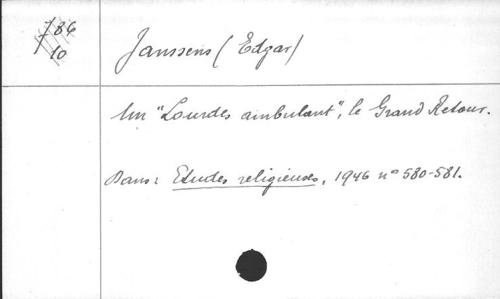 786
10
Janssens (Edgar)
Un "Lourdes ambulant", le Grand Retour.
Dans: Etudes religieuses, 1946 nos 580-581.